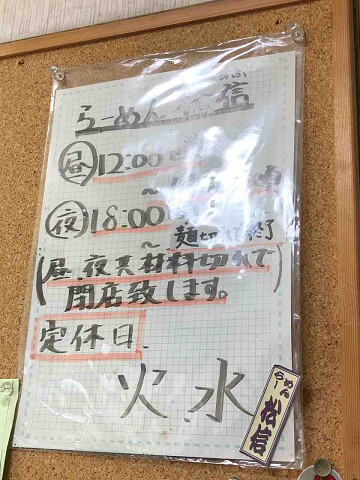 のぶ
らーめん 松信
昼 12:00
~
夜 18:00
~ 麺切れで終了
(昼、夜共材料切れで
閉店致します。)
定休日、
火、水
らーめん 松信